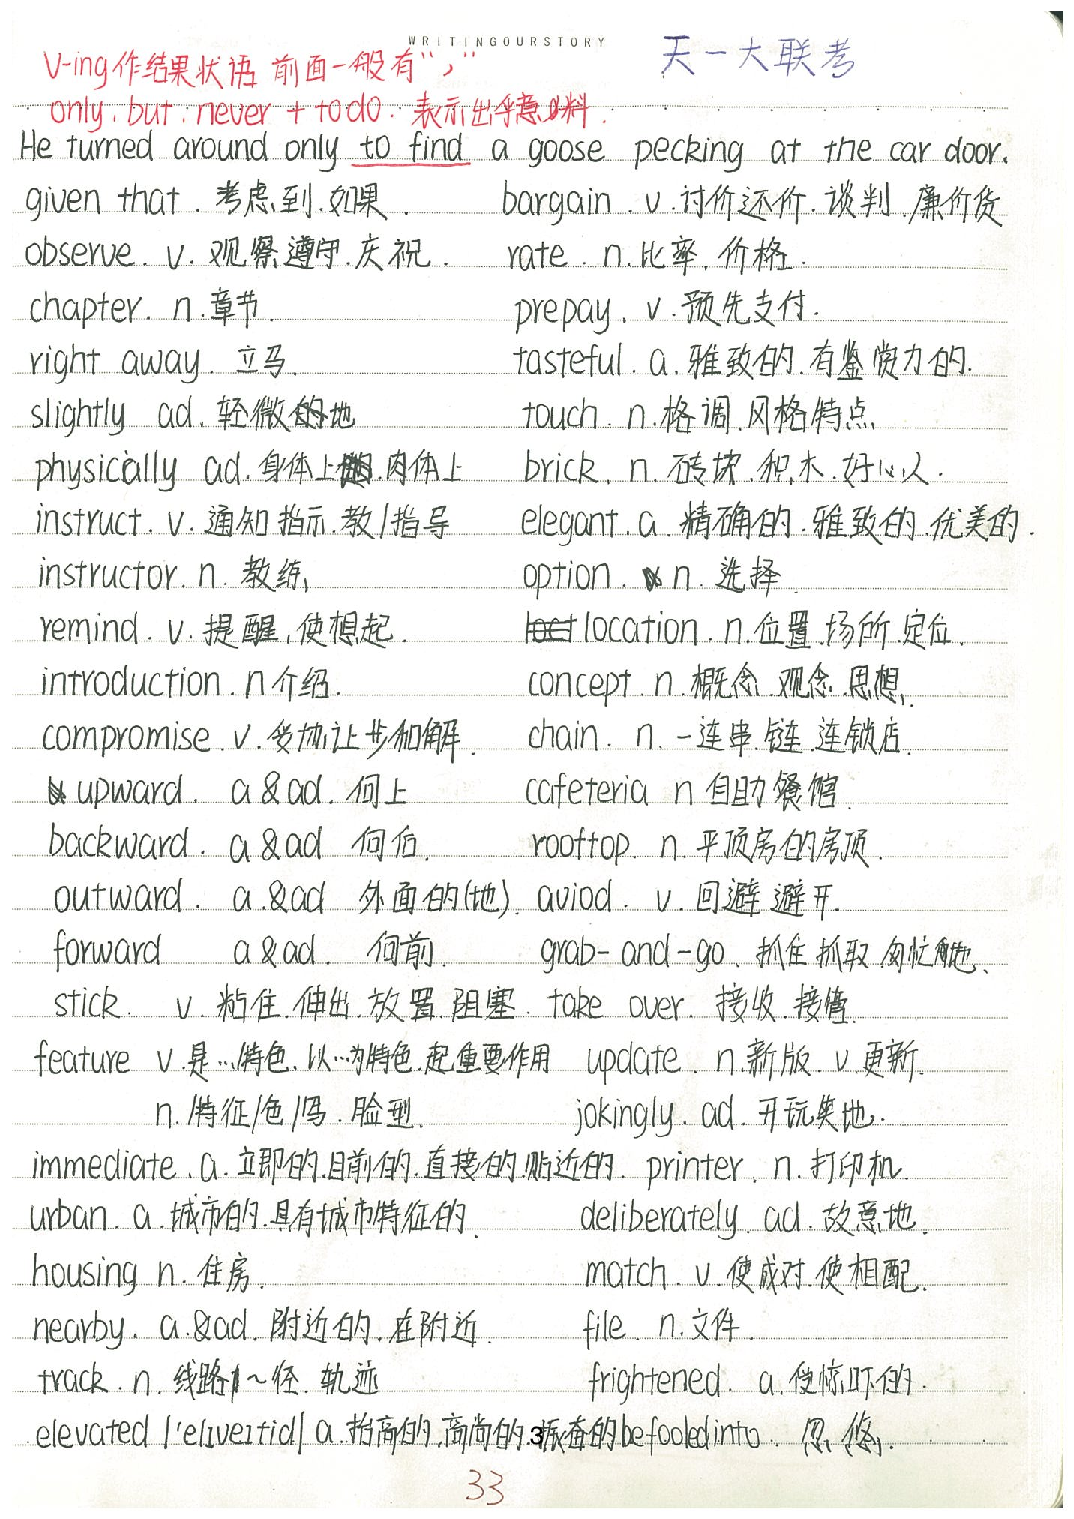 WRITINGOURSTORY
天一大联考
V-ing作结果状语 前面一般有“,”
only.but.never+to do. 表示出乎意料.
He turned around only to find a goose pecking at the car door.
given that. 考虑到.如果. bargain. v.讨价还价.谈判.廉价货
observe. v. 观察 遵守.庆祝. rate. n.比率.价格.
chapter. n.章节. prepay. v.预先支付.
right away. 立马. tasteful. a.雅致的.有鉴赏力的.
slightly ad. 轻微地 touch. n.格调.风格特点.
physically ad.身体上.肉体上 brick. n. 砖块.积木.好心人.
instruct. v. 通知 指示.教/指导 elegant. a. 精确的.雅致的.优美的.
instructor. n. 教练. option. n. 选择
remind. v.提醒.使想起. location. n.位置.场所.定位.
introduction. n介绍. concept. n.概念 观念.思想.
compromise. v.妥协让步和解. chain. n. 一连串.链.连锁店.
upward. a&ad. 向上 cafeteria n 自助餐馆.
backward. a&ad 向后. rooftop. n.平顶房的房顶.
outward. a.&ad 外面的(地). aviod. v.回避 避开.
forward a&ad. 向前. grab-and-go. 抓住 抓取 匆忙
stick. v 粘住.伸出.放置.阻塞. take over. 接收.接管.
feature v.是…特色.以…为特色.起重要作用 update. n.新版. v.更新.
n.特征/色/ 脸型. jokingly. ad.开玩笑地.
immediate. a.立即的.目前的.直接的.贴近的. printer. n.打印机.
urban. a.城市的.具有城市特征的. deliberately ad.故意地.
housing n.住房. match. v.使成对.使相配.
nearby. a.&ad.附近的.在附近. file. n.文件.
track. n. 线路 ~径. 轨迹 frightened. a.受惊吓的.
elevated /'elɪveɪtid/ a.抬高的.高尚的.振奋的 be fooled into. 忽悠.
33